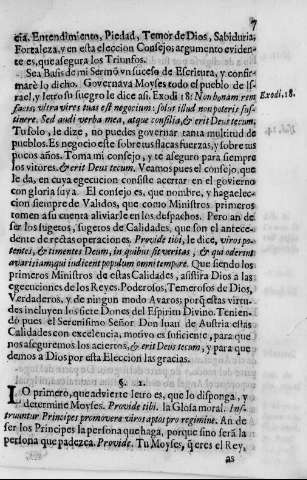 7
cia, Entendimiento, Piedad, Temor de Dios, Sabiduria,
Fortaleza, y en esta eleccion Consejo; argumento evidente
es, que asegura los Triunfos.
Sea Basis de mi Sermõ vn suceso de Escritura, y confir-
marè lo dicho. Governava Moyses todo el pueblo de Is-
rael, y letro su suegro le dice asi. Exodi 18: Non bonam rem Exodi. 18.
facis, ultra vires tuas est negocium: solus illud non poteris sus-
tinere. Sed audi verba mea, atque consilia, & erit Deus tecum.
Tu solo, le dice, no puedes governar tanta multitud de
pueblos. Es negocio este sobre tus flacas fuerzas, y sobre tus
pocos años. Toma mi consejo, y te aseguro para siempre
los vitores. & erit Deus tecum. Veamos pues el consejo, que
le da, en cuya egecucion consiste acertar en el govierno
con gloria suya. El consejo es, que nombre, y haga elec-
cion siempre de Validos, que como Ministros primeros
tomen a su cuenta aliviarle en los despachos. Pero an de
ser los sugetos, sugetos de Calidades, que son el antece-
dente de rectas operaciones. Provide tibi, le dice, viros po-
tentes, & timentes Deum, in quibus sit veritas, & qui oderint
avaritiam, qui iudicent populum omni tempore. Que siendo los
primeros Ministros de estas Calidades, asistira Dios a las
egecuciones de los Reyes. Poderosos, Temerosos de Dios,
Verdaderos, y de ningun modo Avaros; porq̃ estas virtu-
des incluyen los siete Dones del Espiritu Divino. Tenien-
do pues el Serenisimo Señor Don Iuan de Austria estas
Calidades con excelencia, motivo es suficiente, para que
nos aseguremos los aciertos, & erit Deus tecum, y para que
demos a Dios por esta Eleccion las gracias.
§. 1.
LO primero, que advierte letro es, que lo disponga, y
determine Moyses. Provide tibi. la Glosa moral. Ins-
truuntur Principes promovere viros aptos pro regimine. An de
ser los Principes la persona que haga, porque sino serà la
persona que padezca. Provide. Tu Moyses, q̃ eres el Rey,
as